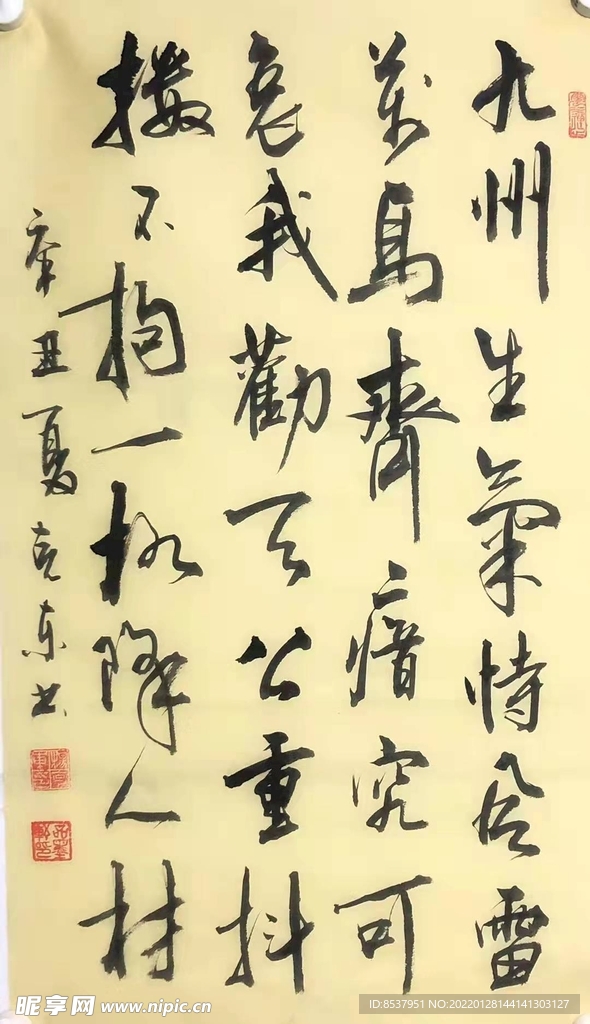 九州生氣恃风雷
萬馬齊瘖究可
哀我勸天公重抖
擻不拘一格降人材
辛丑夏克东书
昵享网 www.nipic.cn
ID:8537951 NO:20220128144141303127